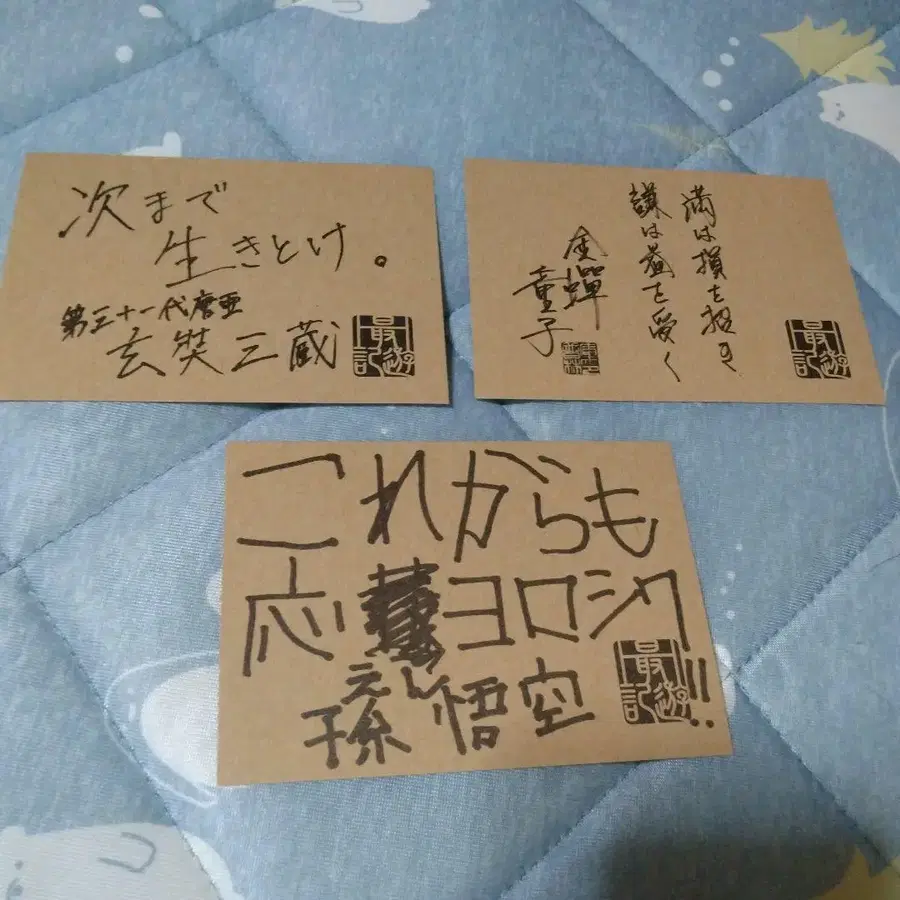 次まで
生きとけ。
第三十一代唐亜
玄奘三蔵
最遊記
満は損を招き
謙は益を受く
金蟬
童子
最遊記
これからも
応 ヨロシク!!
えん
孫悟空
最遊記